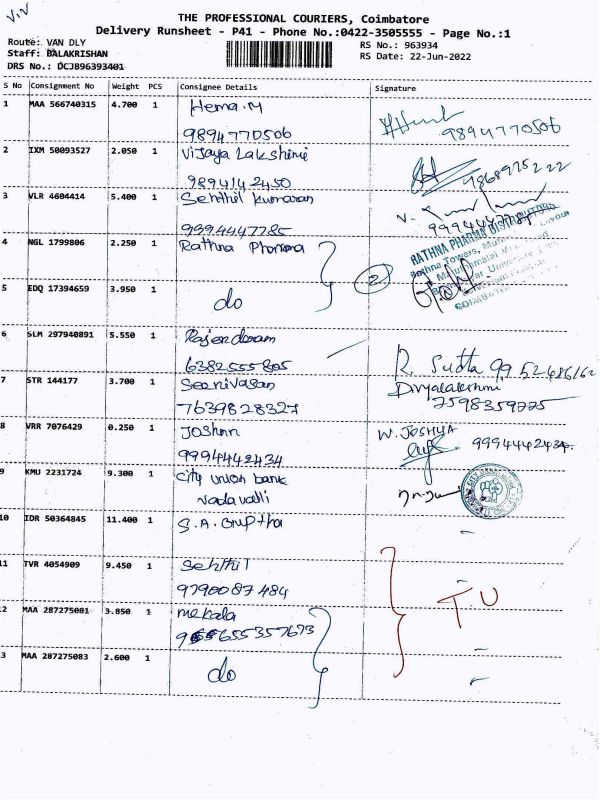 V.V
THE PROFESSIONAL COURIERS, Coimbatore
Delivery Runsheet - P41 - Phone No.:0422-3505555 - Page No.:1
Route: VAN DLY
Staff: BALAKRISHAN
DRS No.: DCJB96393401
RS No.: 963934
RS Date: 22-Jun-2022
S No Consignment No Weight PCS Consignee Details Signature
1 MAA 566740315 4.700 1 Hema.M
9894770506 9894770506
2 IXM 50093527 2.050 1 Vijaya Lakshimi
9894142450 9868975222
3 VLR 4604414 5.400 1 Senthil Kumaran
9994447785
4 NGL 1799806 2.250 1 Rathna Pharma
RATHNA PHARMA DISTRIBUTORS
Rathna Towers,
2
5 EDQ 17394659 3.950 1 do
6 SLM 297940891 5.550 1
6382555805 R. Sudha 9952486162
7 STR 144177 3.700 1 Seenivasan Divyalakshmi
7639828327 7598359775
8 VRR 7076429 0.250 1 Joshan W. JOSHUA
9994442434 9994442434
9 KMU 2231724 9.300 1 City union bank
vadavalli
10 IDR 50364845 11.400 1 S.A. Gruptha
11 TVR 4054909 9.450 1 Senthil
9790087484 TU
12 MAA 287275081 3.850 1 Mekala
13 MAA 287275083 2.600 1 do